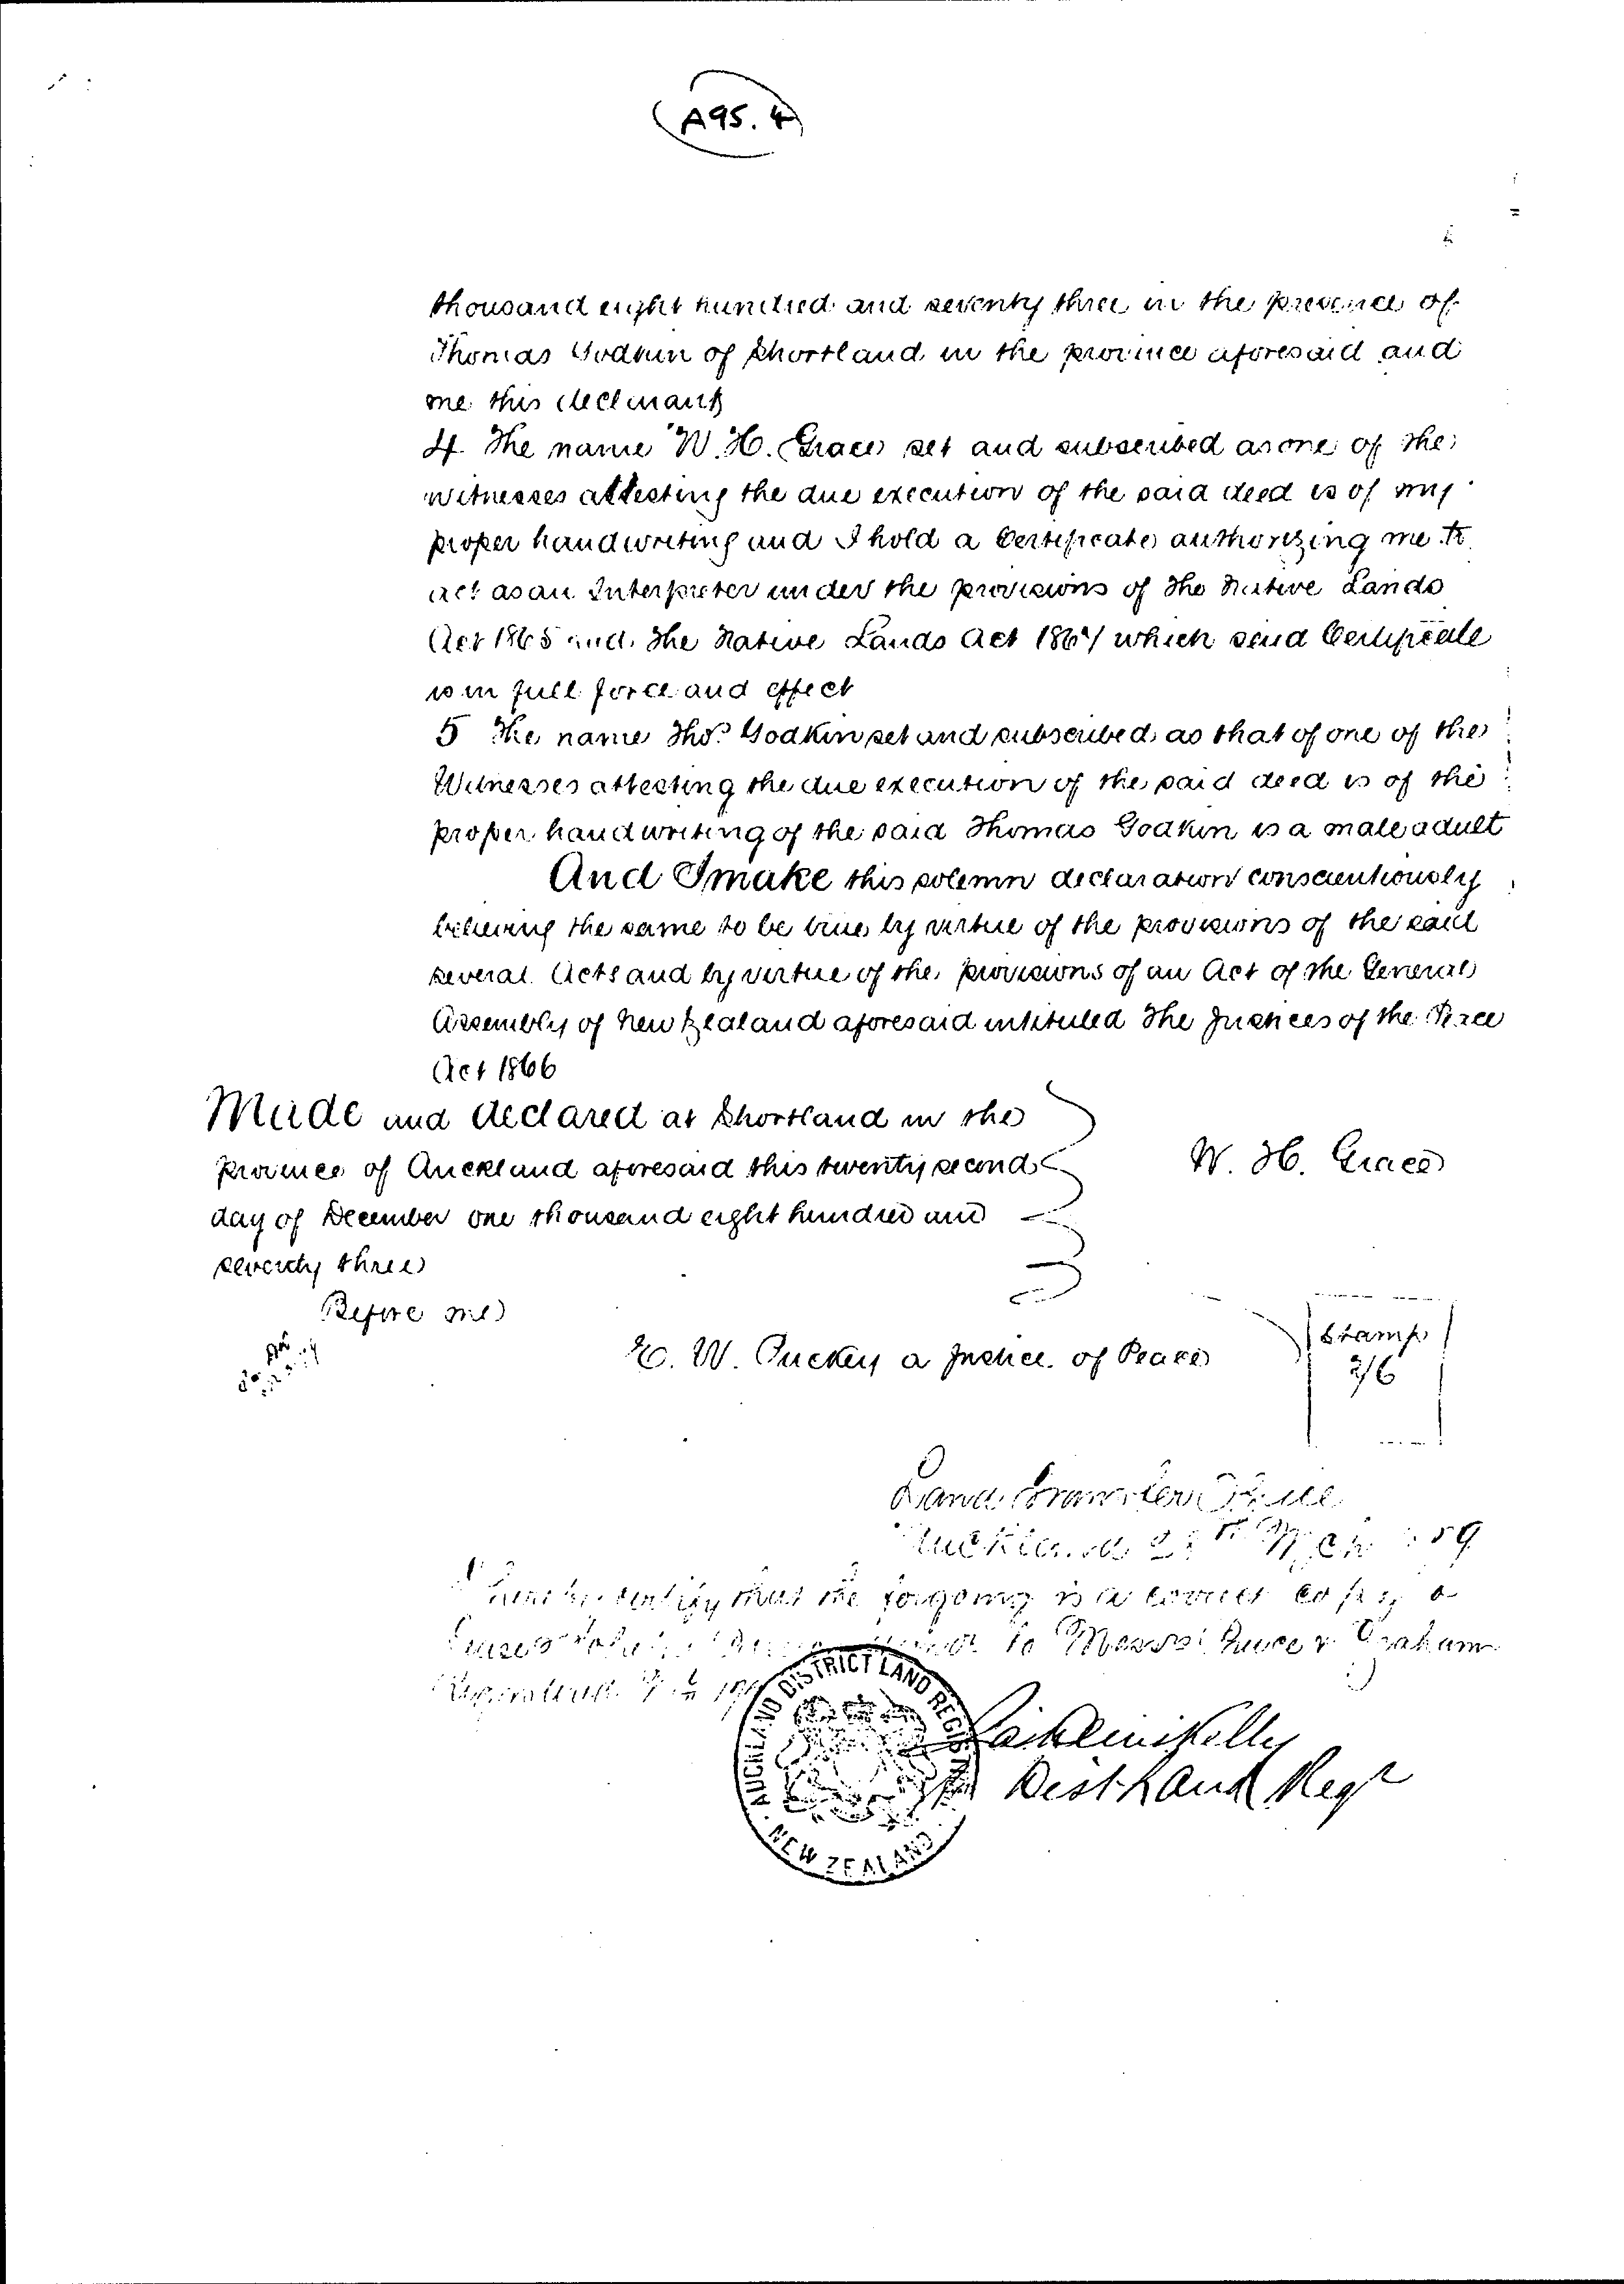 A95. 4
thousand eight hundred and seventy three in the presence of
Thomas Godkin of Shortland in the province aforesaid and
me this declarant
4 The name "W. H. Grace set and subscribed as one of the
witnesses attesting the due execution of the said deed is of my
proper handwriting and I hold a Certificate authorizing me to
act as an Interpreter under the provisions of The Native Lands
Act 1865 and The Native Lands Act 1867 which said Certificate
is in full force and effect
5 The name Thos. Godkin set and subscribed as that of one of the
Witnesses attesting the due execution of the said deed is of the
proper handwriting of the said Thomas Godkin is a male adult
And I make this solemn declaration conscientiously
believing the same to be true by virtue of the provisions of the said
several Acts and by virtue of the provisions of an Act of the General
Assembly of New Zealand aforesaid intituled The Justices of the Peace
Act 1866
Made and declared at Shortland in the
province of Auckland aforesaid this twenty second
day of December one thousand eight hundred and
seventy three
W. H. Grace
Before me
E. W. Puckey a Justice of Peace
Stamp
2/6
Land Transfer Office
Auckland
certify that the forgoing is a correct copy o
to Messrs Graham
AUCKLAND DISTRICT LAND REGISTRY
NEW ZEALAND
Dist Land Regr